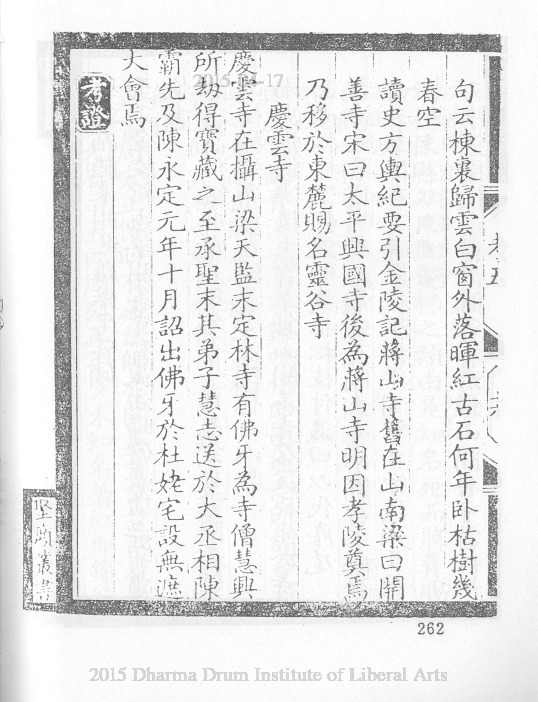 句云棟裏歸雲白窗外落暉紅古石何年臥枯樹幾
春空
讀史方輿紀要引金陵記蔣山寺舊在山南梁曰開
善寺宋曰太平興國寺後為蔣山寺明因孝陵奠焉
乃移於東麓賜名靈谷寺
慶雲寺
慶雲寺在攝山梁天監末定林寺有佛牙為寺僧慧興
所劫得寶藏之至承聖末其弟子慧志送於大丞相陳
霸先及陳永定元年十月詔出佛牙於杜姥宅設無遮
大會焉
考證
叢書
262
2015 Dharma Drum Institute of Liberal Arts